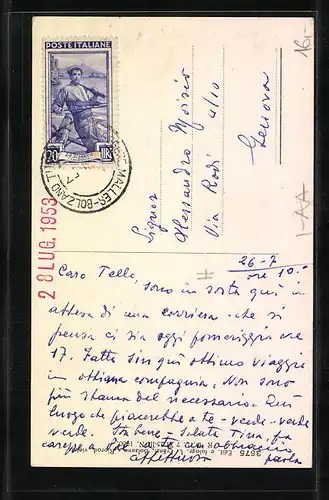 POSTE ITALIANE
20 LIRE
MALLER-BOLZANO
28 LUG. 1953
16,-
Signor
Alessandro Moisio
Via Rodi
Genova
I-AA
26-7
ore 10.-
Caro Tello,
sono in sosta qui in
attesa di una corriera che si
pensa ci sia oggi pomeriggio ore
17. Fatto sin qui ottimo viaggio
in ottima compagnia. Non sono
più stanca del necessario. Qui
luogo che piacerebbe a te - verde - verde
verde. Sto bene - saluta Tina, fa
carezze a e a te un abbraccio
affettuoso
paola
3675 Edit. e fotogr.